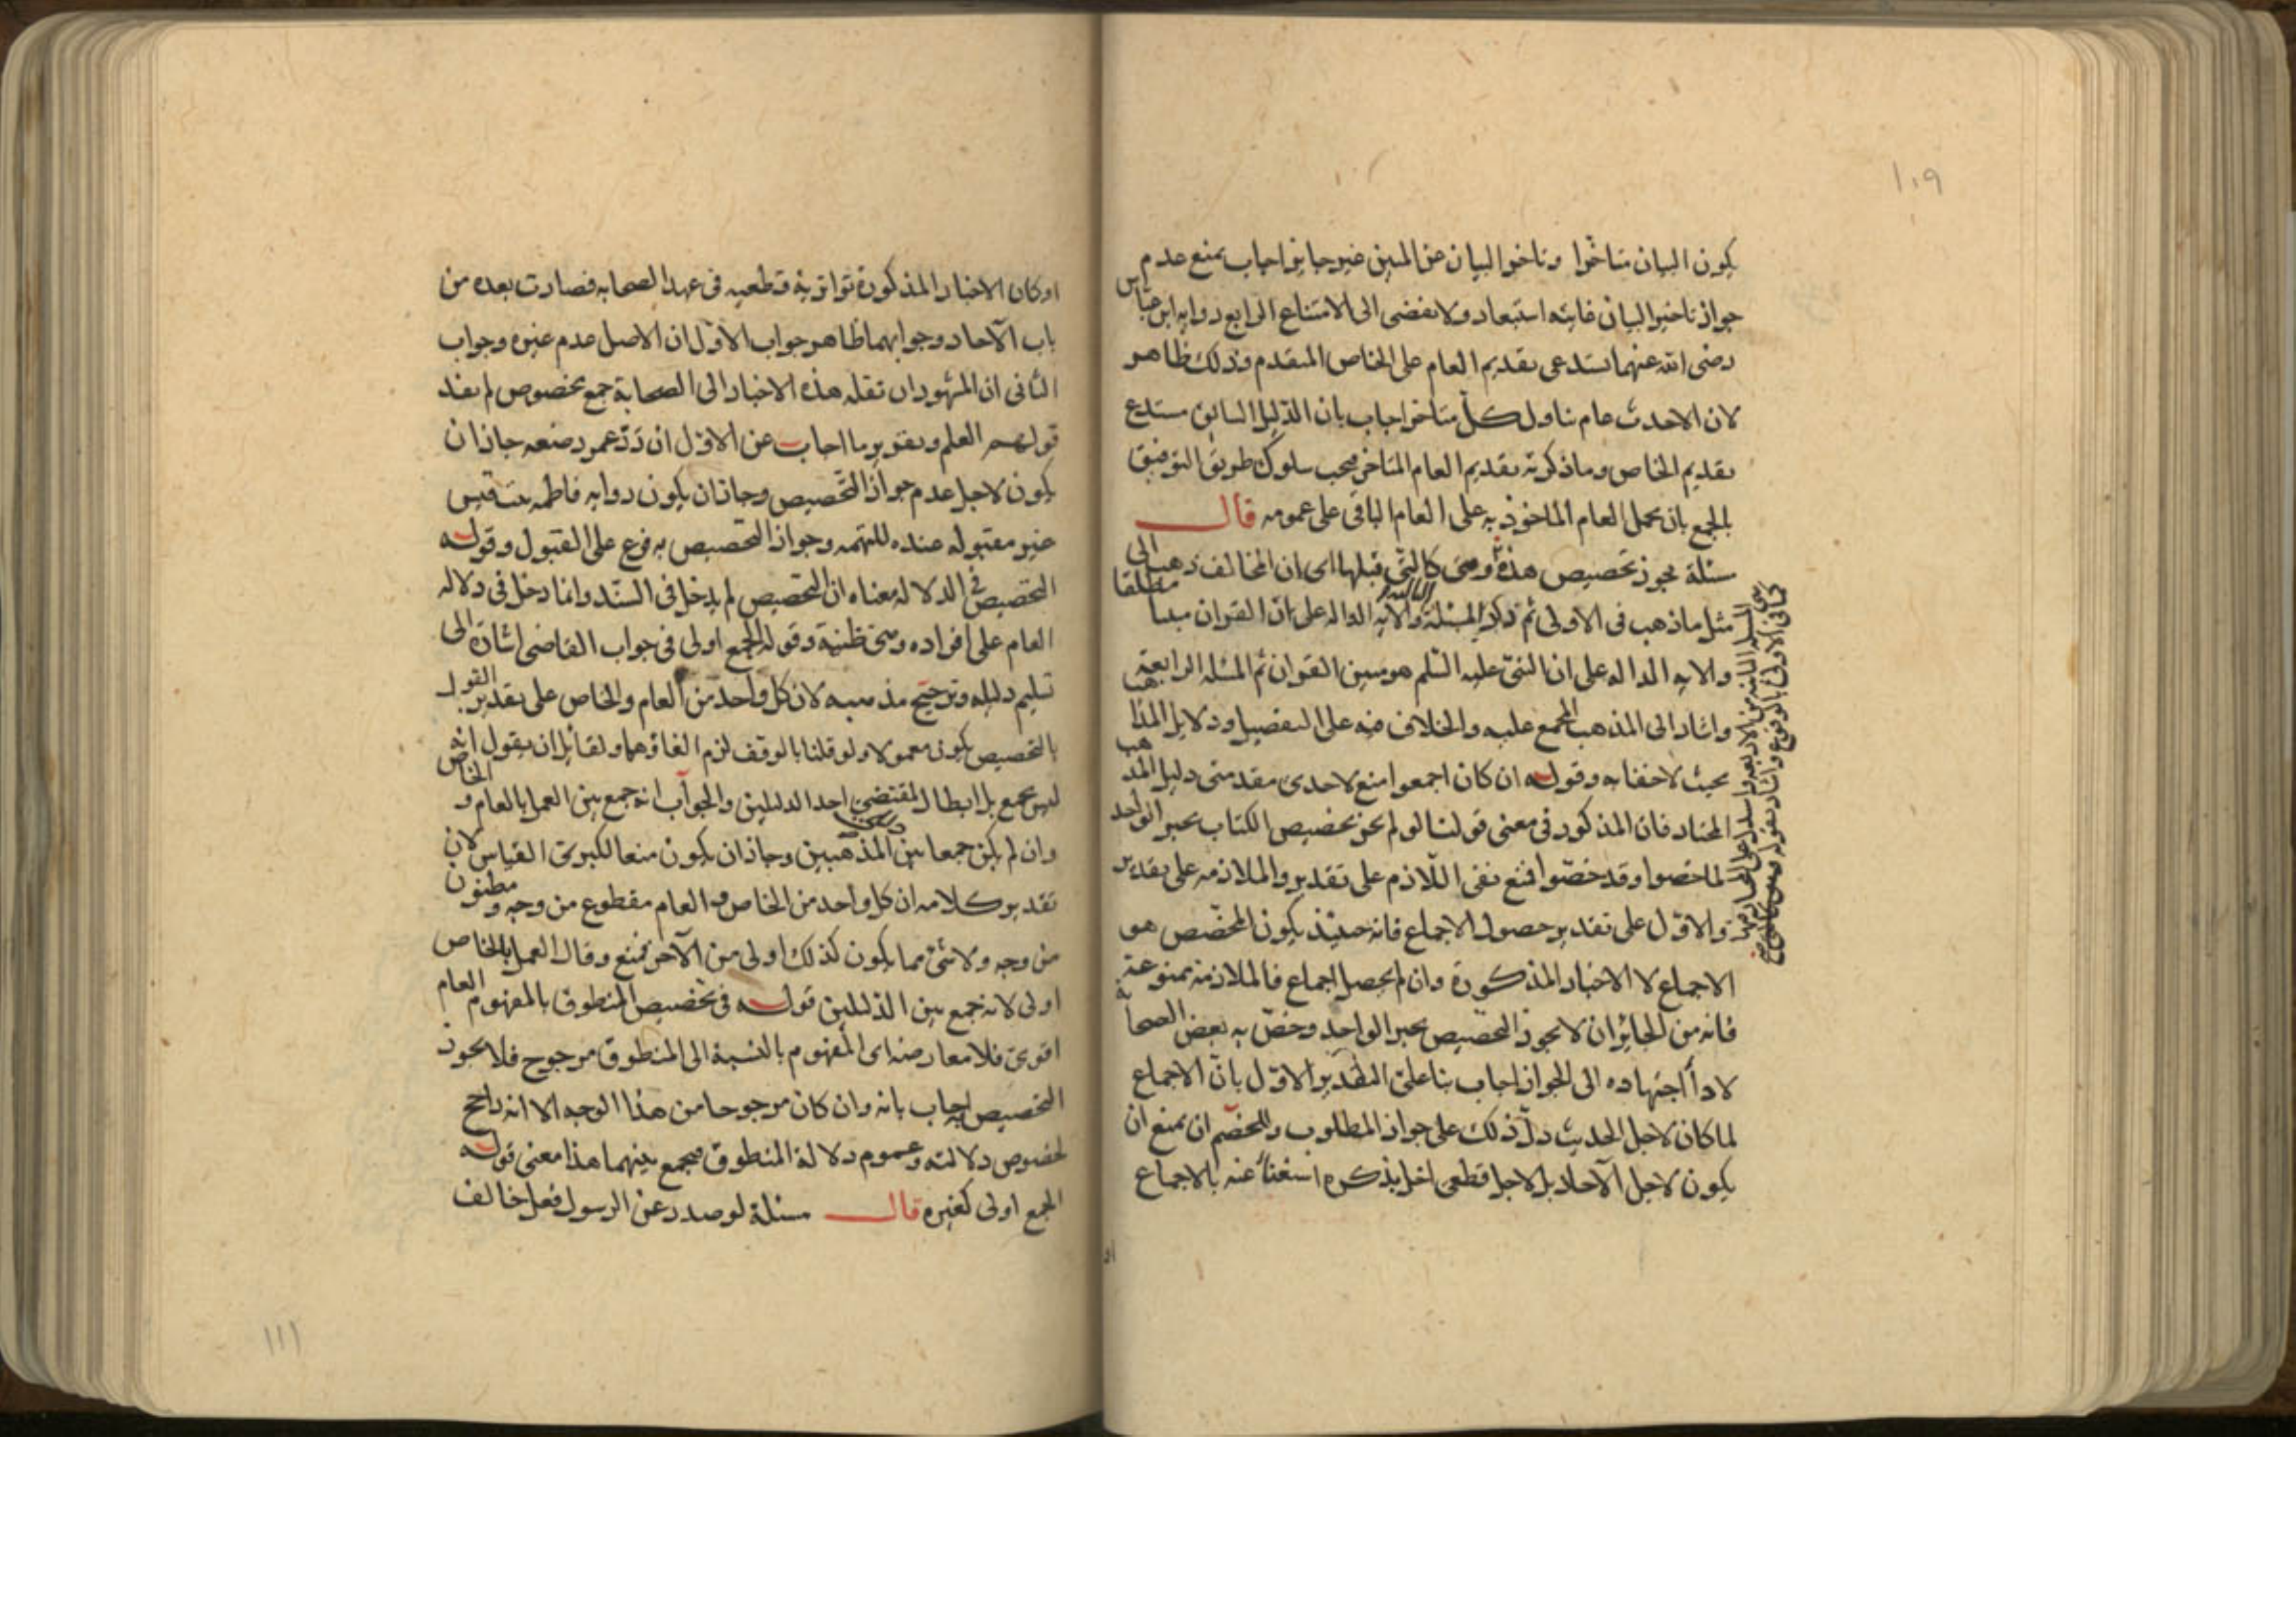 ١٠٩
يكون البيان متاخرا وتاخر البيان عن المبين غير جايز اجاب بمنع عدم
جواز تاخير البيان غايته استبعاد ولا يفضى الى الامتناع الرابع روايه ابن عباس
رضى الله عنهما تستدعى تقديم العام على الخاص المتقدم وذلك ظاهر
لان الاحدث عام تناول كل متاخر اجاب بان الدليل السابق يستدع
تقديم الخاص وما ذكرته تقديم العام المتاخر فيجب سلوك طريق التوفيق
بالجمع بان يحمل العام الماخوذ به على العام الباقى على عمومه قال
مسئلة يجوز تخصيص هذه وهى كالتى قبلها اى ان المخالف ذهب الى
مثل ما ذهب فى الاولى ثم ذكر المسئلة الثالثة والايه الداله على ان القران مبينا مطلقا
والايه الداله على ان النبى عليه السلم هو مبين القران ثم المسئله الرابعة
واشار الى المذهب المجمع عليه والخلاف فيه على التفصيل ودلايل المذاهب
بحيث لا خفا به وقوله ان كان اجمعوا منع لاحدى مقدمتى دليل المذهب
المختار فان المذكور فى معنى قولنا لو لم يجز تخصيص الكتاب بخبر الواحد
لما خصوا وقد خصوا فمنع نفى اللازم على تقدير والملازمه على تقدير
والاول على تقدير حصول الاجماع فانه حينئذ يكون المخصص هو
الاجماع لا الاخبار المذكورة وان لم يحصل اجماع فالملازمة ممنوعة
فانه من الجايز ان لا يجوز التخصيص بخبر الواحد وخص به بعض الصحابة
لادا اجتهاده الى الجواز اجاب بنا على التقدير الاول بان الاجماع
لما كان لاجل الحديث دل ذلك على جواز المطلوب وللخصم ان يمنع ان
يكون لاجل الآحاد بل لاجل قطعى اخر لم يذكره استغناء عنه بالاجماع
او
او كان الاخبار المذكورة تواترية قطعيه فى عهد الصحابه فصارت بعده من
باب الآحاد وجوابهما ظاهر جواب الاول ان الاصل عدم غيره وجواب
الثانى ان المشهور ان نقله هذه الاخبار الى الصحابة جمع مخصوص لم يفد
قولهم العلم وتقرير ما اجاب عن الاول ان رد عمر رضعه جاز ان
يكون لاجل عدم جواز التخصيص وجاز ان يكون روايه فاطمه بنت قيس
غير مقبوله عنده للتهمه وجواز التخصيص به فرع على القبول وقوله
التخصيص فى الدلاله معناه ان التخصيص لم يدخل فى السند وانما دخل فى دلاله
العام على افراده وهى ظنية وقوله الجمع اولى فى جواب القاضى اشارة الى
تسليم دليله وترجيح مذهبه لان كل واحد من العام والخاص على تقدير القول
بالتخصيص يكون معمولا ولو قلنا بالوقف لزم الغاؤهما ولقائل ان يقول انه
ليس بجمع بل ابطال لمقتضى احد الدليلين والجواب انه جمع بين العمل بالعام والخاص
وان لم يكن جمعا بين المذهبين وجاز ان يكون منعا لكبرى القياس لان
تقدير كلامه ان كل واحد من الخاص والعام مقطوع من وجه ومظنون
من وجه ولا شئ مما يكون كذلك اولى من الآخر فمنع وقال العمل بالخاص
اولى لانه جمع بين الدليلين قوله فى تخصيص المنطوق بالمفهوم العام
اقوى فلا معارضه اى المفهوم بالنسبة الى المنطوق مرجوح فلا يجوز
التخصيص به اجاب بانه وان كان مرجوحا من هذا الوجه الا انه راجح
لخصوص دلالته وعموم دلالة المنطوق فيجمع بينهما هذا معنى قوله
الجمع اولى كغيره قال مسئلة لو صدر عن الرسول فعل خالف
١١١